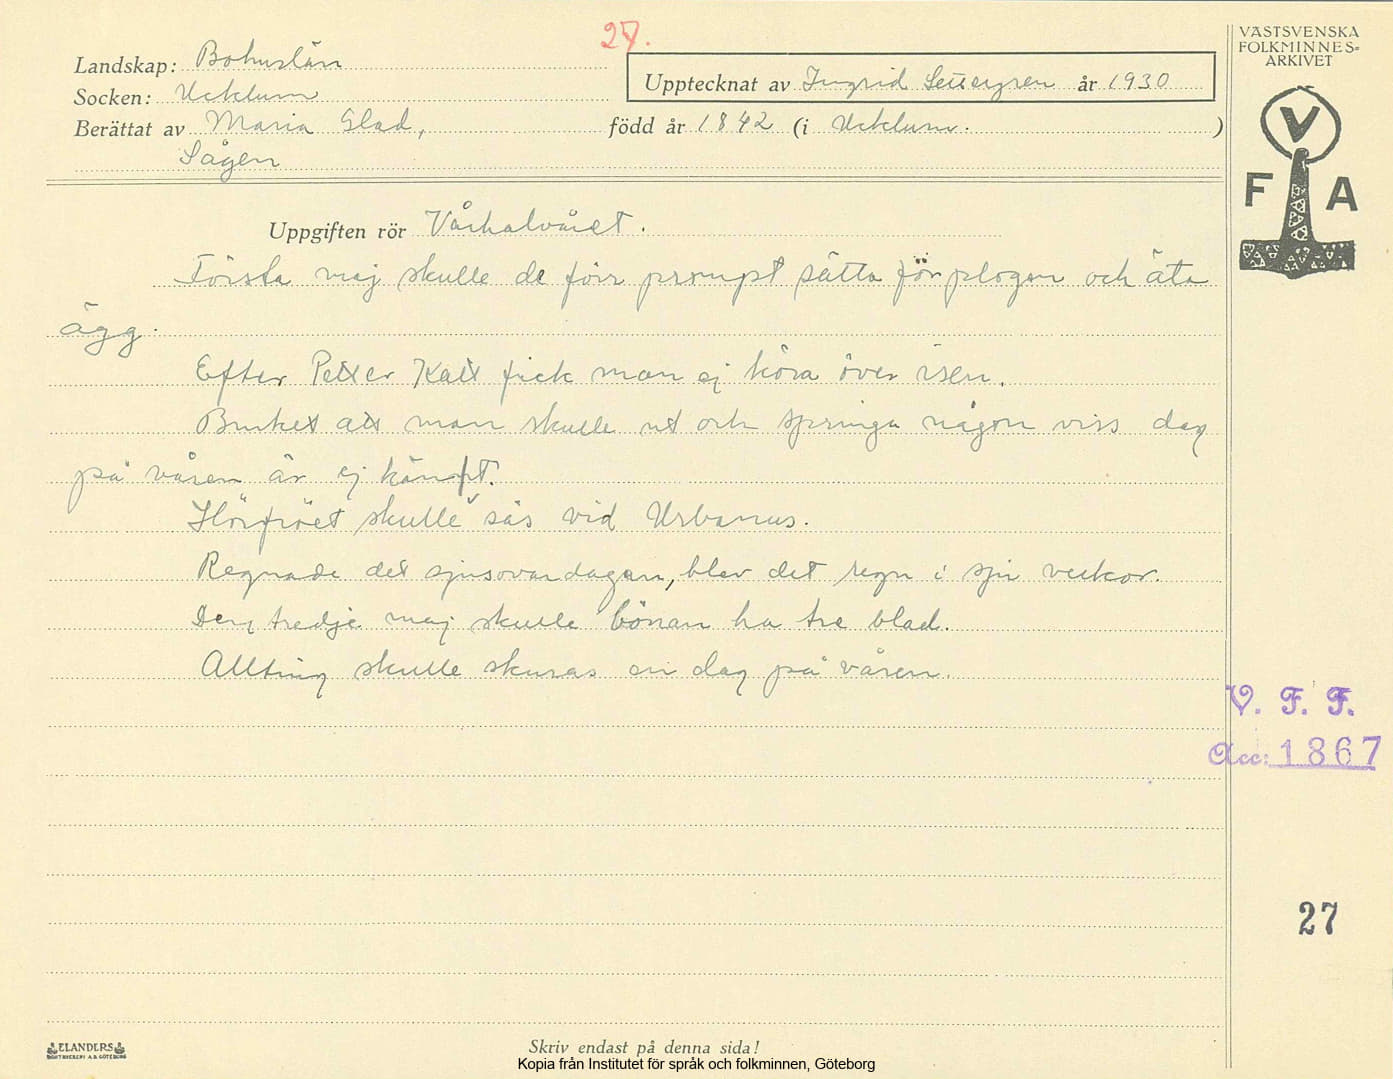 27.
VÄSTSVENSKA
FOLKMINNES-
ARKIVET
Landskap: Bohuslän
Upptecknat av Ingrid år 1930
Socken: Ucklum
Berättat av Maria Glad, född år 1842 (i Ucklum. )
Sågen
V
F A
Uppgiften rör Vårhalvåret.
Första maj skulle de förr prompt sätta för plogen och äta
ägg.
Efter Petter Katt fick man ej köra över isen.
Bruket att man skulle ut och springa någon viss dag
på våren är ej känt.
Hörfröet skulle sås vid Urbanus.
Regnade det sjusovardagen, blev det regn i sju veckor.
Den tredje maj skulle bönan ha tre blad.
Allting skulle skuras en dag på våren.
V. F. F.
Acc: 1867
27
ELANDERS
BOKTRYCKERI A.B. GÖTEBORG
Skriv endast på denna sida!
Kopia från Institutet för språk och folkminnen, Göteborg